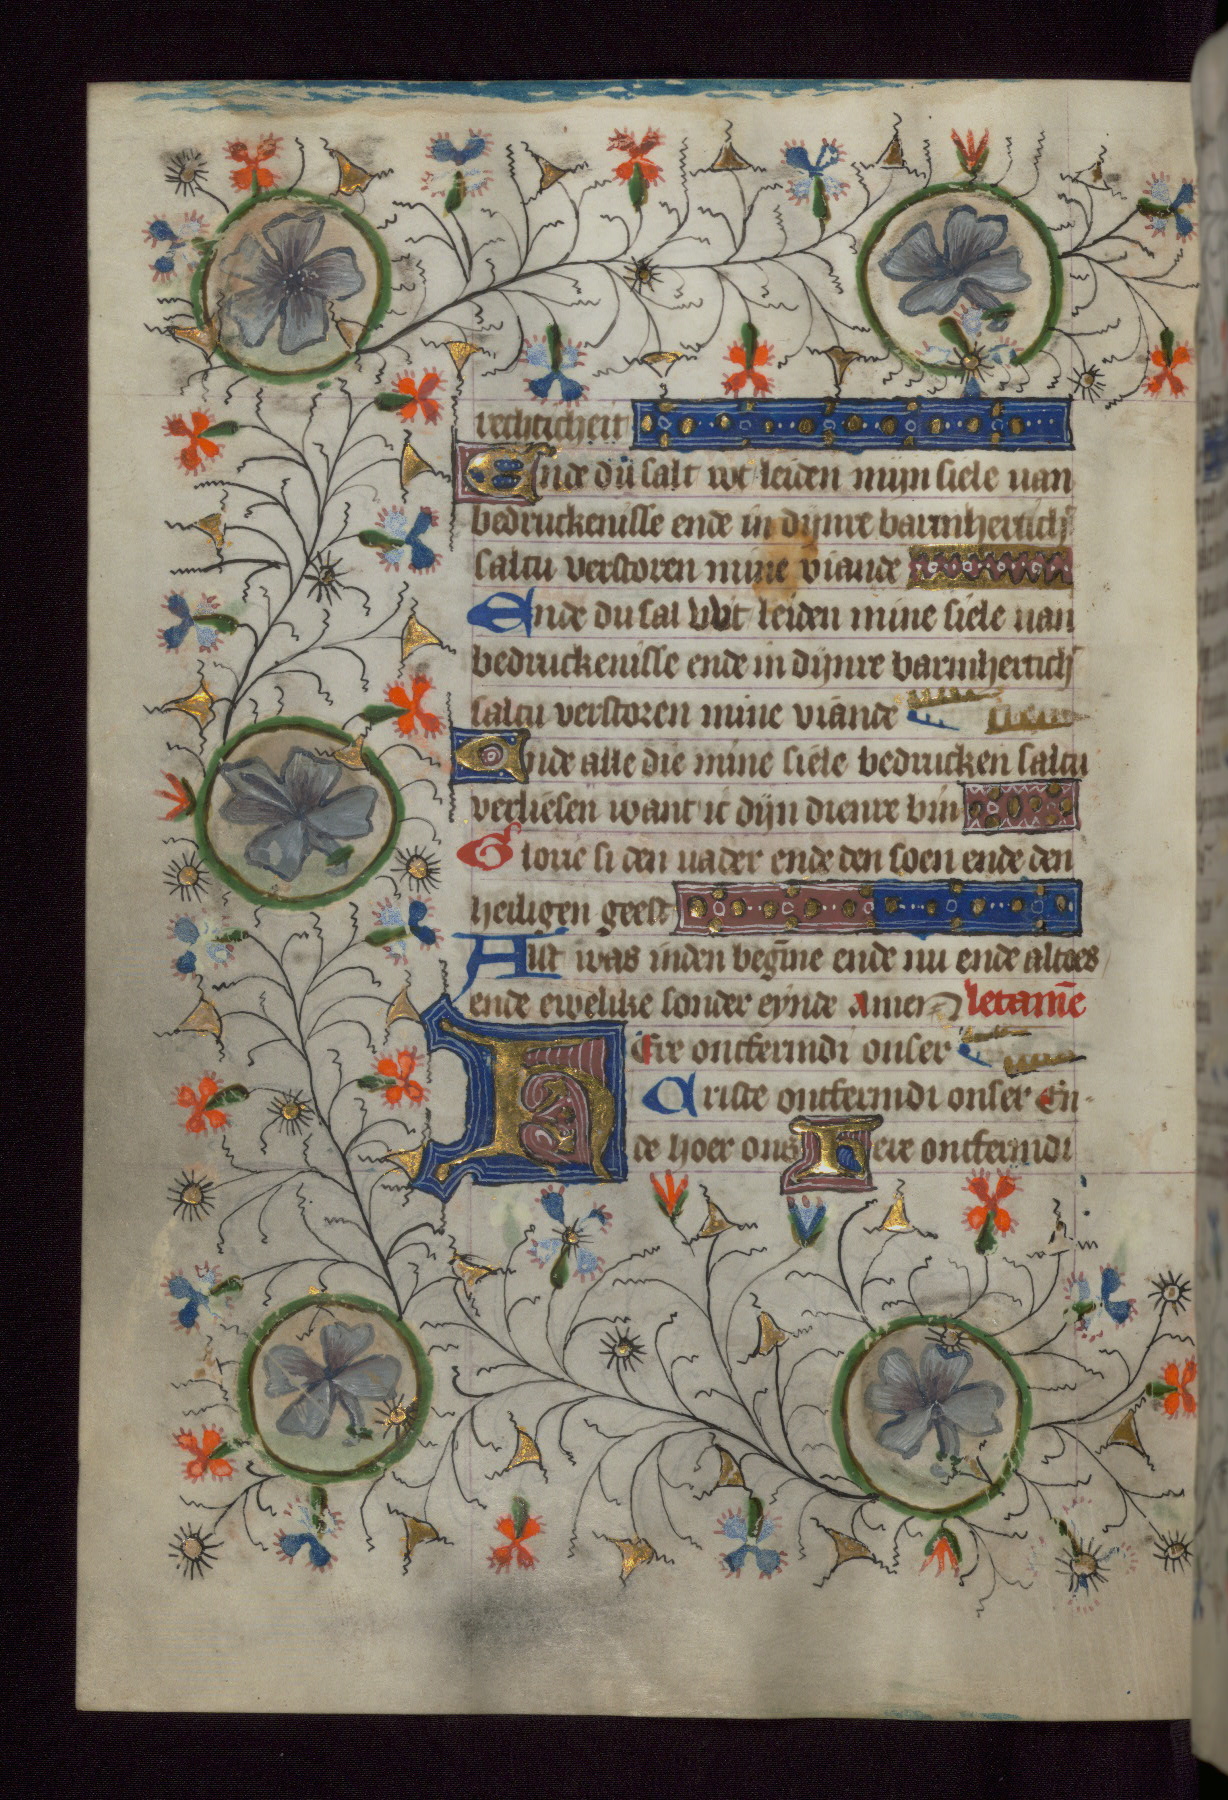 rechticheit
Ende du salt wt leiden mijn siele van
bedruckenisse ende in dijnre barmherticht
saltu verstoren mine viande
Ende du sal wt leiden mine siele van
bedruckenisse ende in dijnre barmherticht
saltu verstoren mine viande
Ende alle die mine siele bedrucken saltu
verliesen want ic dijn dienre bin
Glorie si den vader ende den soen ende den
heiligen geest
Alst was inden begīne ende nu ende altoes
ende ewelike sonder eynde Amen letanīe
Here ontfermdi onser
Criste ontfermdi onser En-
de hoer ons Here ontfermdi